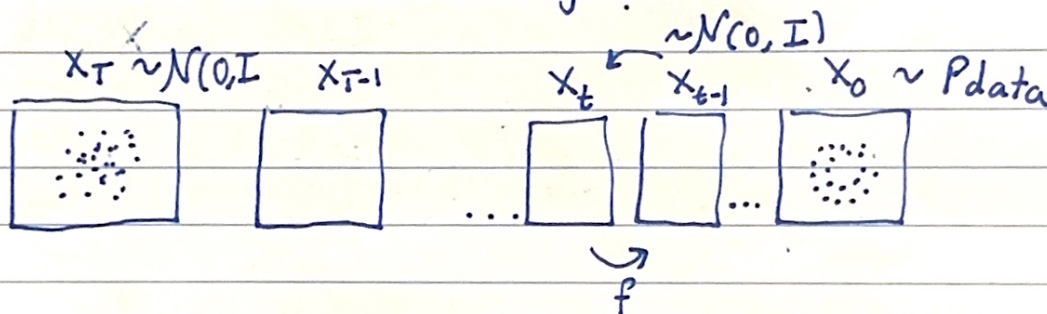 ~N(0, I)
X_T ~N(0,I X_{T-1} X_t X_{t-1} X_0 ~ Pdata
... ...
f